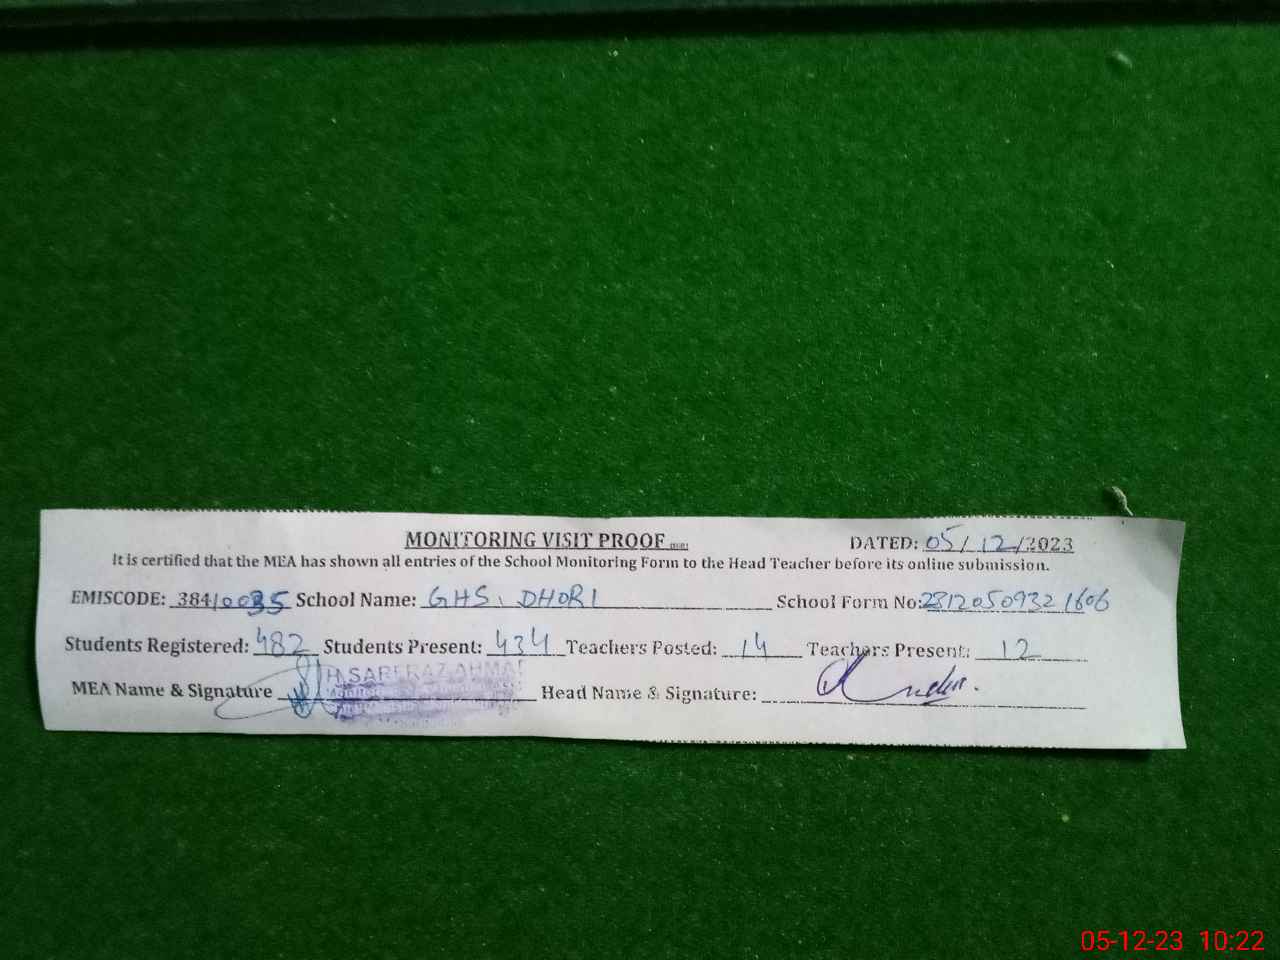 MONITORING VISIT PROOF
DATED: 05/12/2023
It is certified that the MEA has shown all entries of the School Monitoring Form to the Head Teacher before its online submission.
EMISCODE: 38410035 School Name: GHS, DHORI School Form No: 23120509321606
Students Registered: 482 Students Present: 434 Teachers Posted: 14 Teachers Present: 12
MEA Name & Signature Head Name & Signature:
05-12-23 10:22